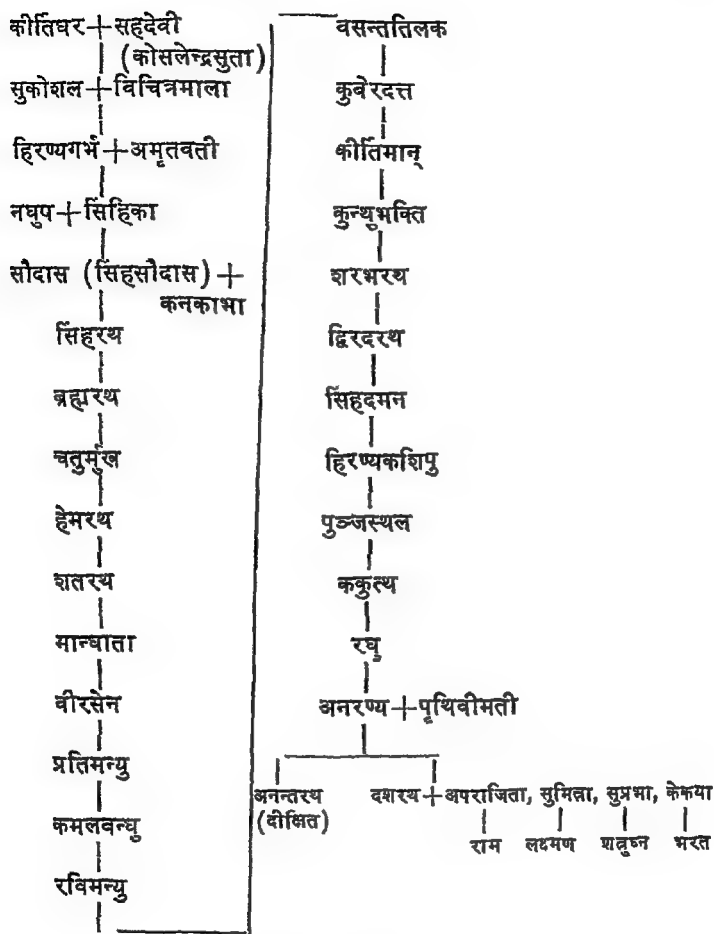 कीर्तिधर + सहदेवी
(कोसलेन्द्रसुता)
सुकोशल + विचित्रमाला
हिरण्यगर्भ + अमृतवती
नघुष + सिंहिका
सौदास (सिंहसौदास) +
कनकाभा
सिंहरथ
ब्रह्मरथ
चतुर्मुख
हेमरथ
शतरथ
मान्धाता
वीरसेन
प्रतिमन्यु
कमलबन्धु
रविमन्यु
वसन्ततिलक
कुवेरदत्त
कीर्तिमान्
कुन्थुभक्ति
शरभरथ
द्विरदरथ
सिंहदमन
हिरण्यकशिपु
पुञ्जस्थल
ककुत्थ
रघु
अनरण्य + पृथिवीमती
अनन्तरथ दशरथ + अपराजिता, सुमित्रा, सुप्रभा, केकया
(दीक्षित)
राम लक्ष्मण शत्रुघ्न भरत